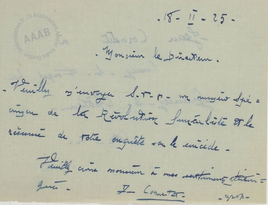 18-II-25
Monsieur le Directeur.
Veuillez m'envoyer S.V.P. un numéro spé-
cimen de la Révolution Surréaliste et le
résumé de votre enquête sur le suicide.
Veuillez croire monsieur à mes sentiments
AAAB